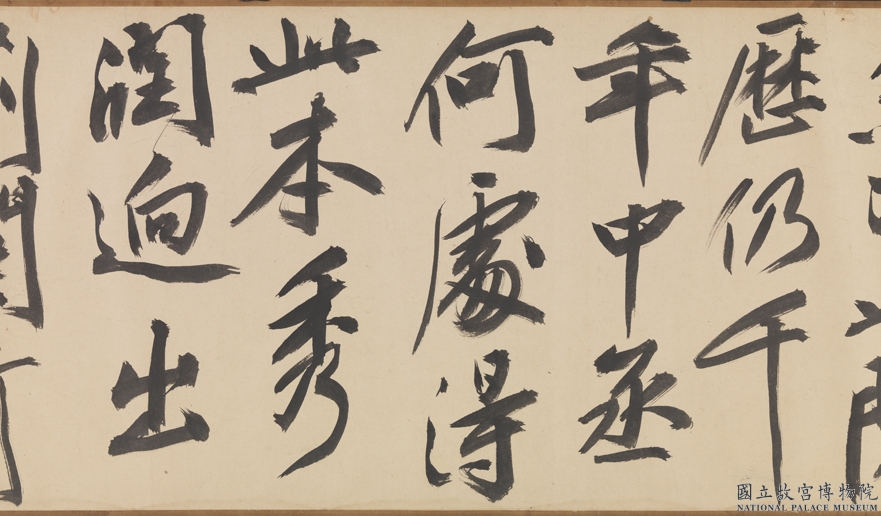 歷仍千
年中丞
何處得
此本秀
潤迥出
國立故宮博物院
NATIONAL PALACE MUSEUM